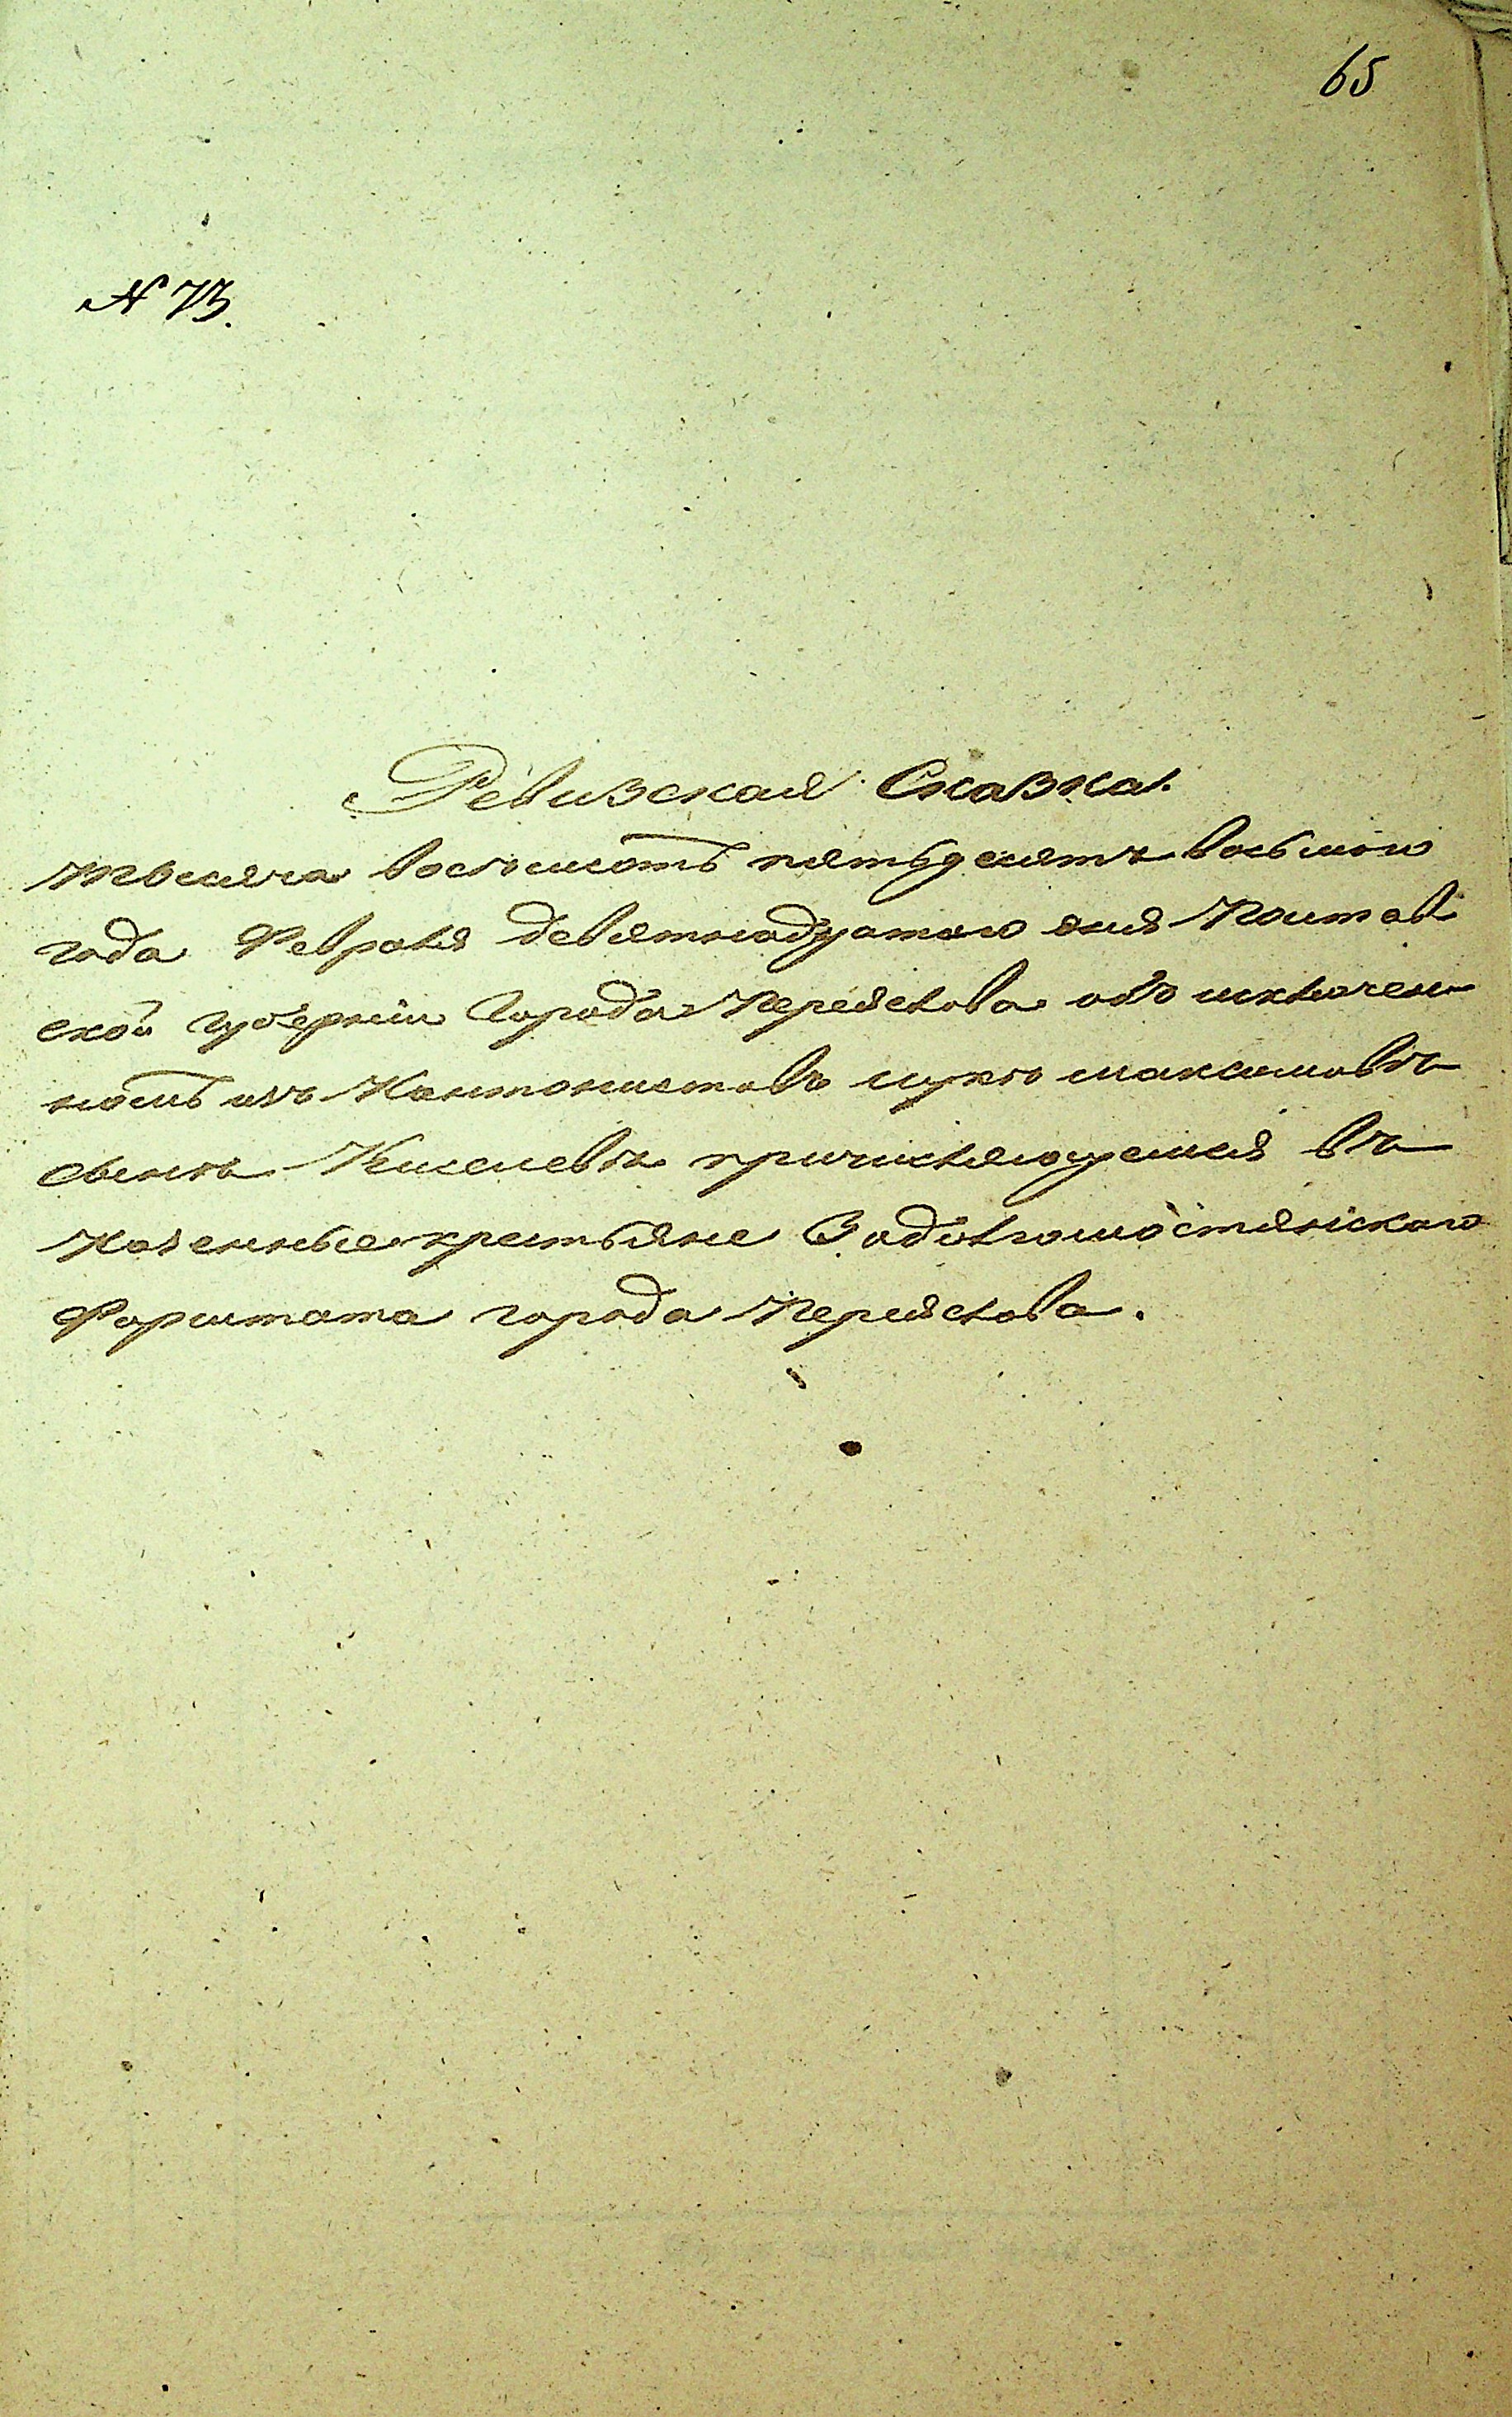 65
№ 73.
Ревизская Сказка.
Тысяча восемсотъ пятьдесятъ восьмого
года Февраля девятнадцатого дня Полтав
ской губерніи Города Переяслова объ исключен
номъ изъ Кантонистовъ Максимовъ
сынъ Киселевъ причисляющемся въ
Казенные крестьяне Задолгомостянского
Форштата города Переяслова.